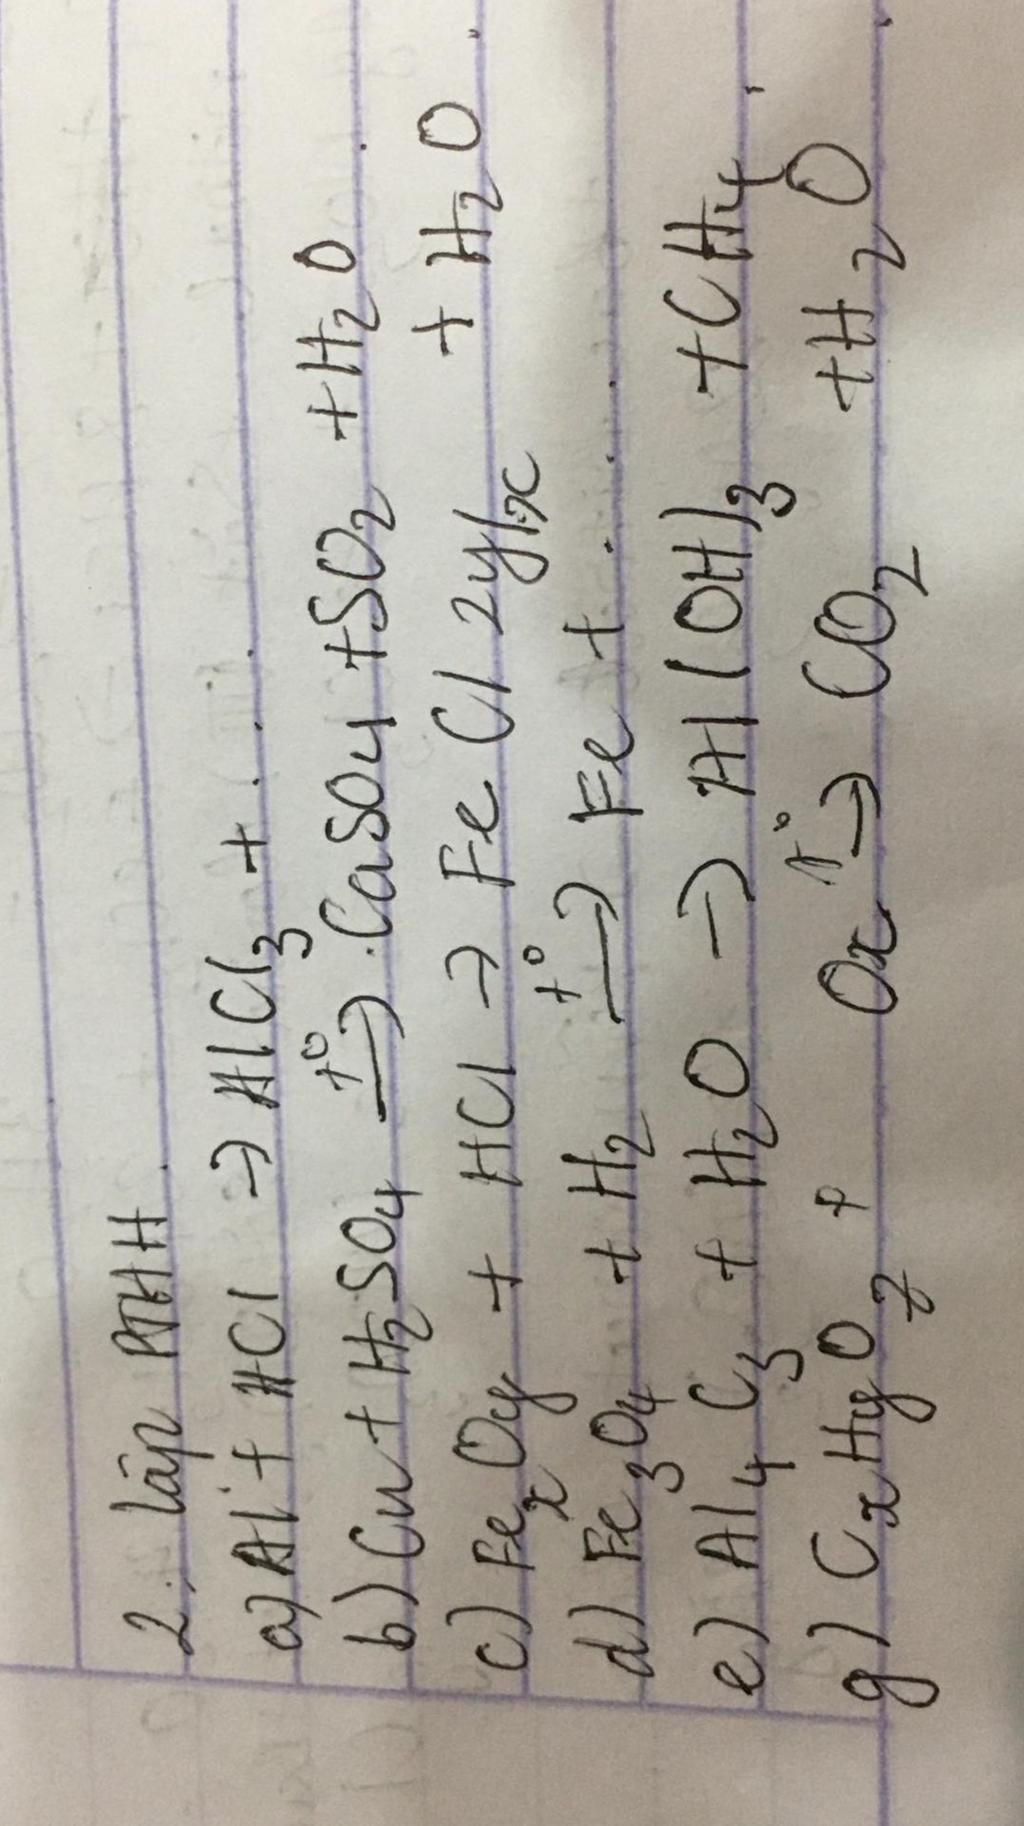 2. lập PTHH
a) Al + HCl → AlCl3 + ...
b) Cu + H2SO4 t° → CaSO4 + SO2 + H2O
c) FexOy + HCl → FeCl2y/x + H2O
d) Fe3O4 + H2 t° → Fe + ...
e) Al4C3 + H2O → Al(OH)3 + CH4
g) CxHyOz + Ox t° → CO2 + H2O